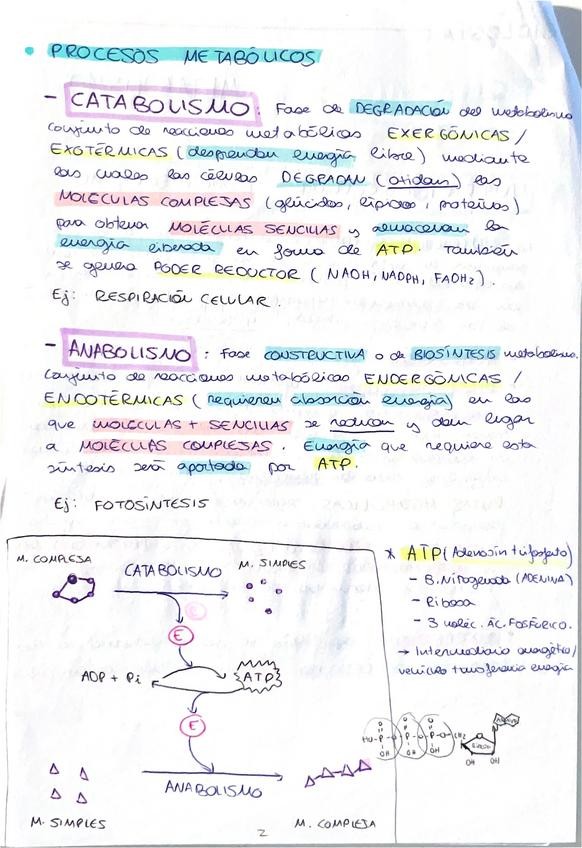 • PROCESOS METABÓLICOS
- CATABOLISMO: Fase de DEGRADACIÓN del metabolismo
conjunto de reacciones metabólicas EXERGÓNICAS /
EXOTÉRMICAS (desprenden energía libre) mediante
las cuales las células DEGRADAN (oxidan) las
MOLÉCULAS COMPLEJAS (glúcidos, lípidos, proteínas)
para obtener MOLÉCULAS SENCILLAS y almacenan la
energía liberada en forma de ATP. También
se genera PODER REDUCTOR (NADH, NADPH, FADH₂).
Ej: RESPIRACIÓN CELULAR.
- ANABOLISMO: Fase CONSTRUCTIVA o de BIOSÍNTESIS metabolismo.
Conjunto de reacciones metabólicas ENDERGÓNICAS /
ENDOTÉRMICAS (requieren absorción energía) en las
que MOLÉCULAS + SENCILLAS se reducen y dan lugar
a MOLÉCULAS COMPLEJAS. Energía que requiere esta
síntesis será aportada por ATP.
Ej: FOTOSÍNTESIS
M. COMPLEJA
CATABOLISMO
M. SIMPLES
E
E
ADP + Pi
ATP
E
ANABOLISMO
M. SIMPLES
M. COMPLEJA
* ATP (Adenosin trifosfato)
- B. Nitrogenada (ADENINA)
- Ribosa
- 3 moléc. ÁC. FOSFÓRICO.
→ Intermediario energético/
vehículo transferencia energía
O O O
HO-P-O-P-O-P-O-CH₂
OH OH OH
Adenina
N
Ribosa
OH OH
2